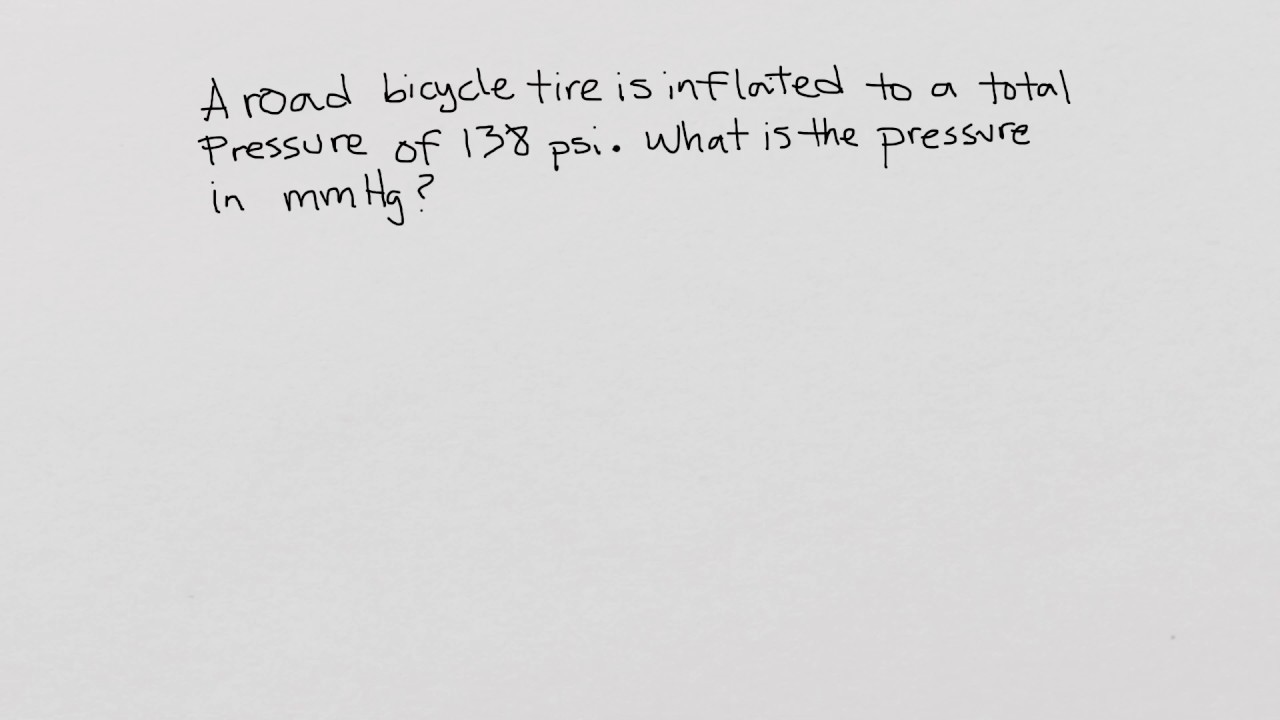 A road bicycle tire is inflated to a total
Pressure of 138 psi. What is the pressure
in mmHg?